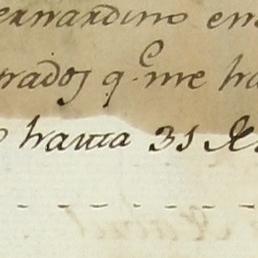 ernardino en
rados q.e me ha
hasta 31